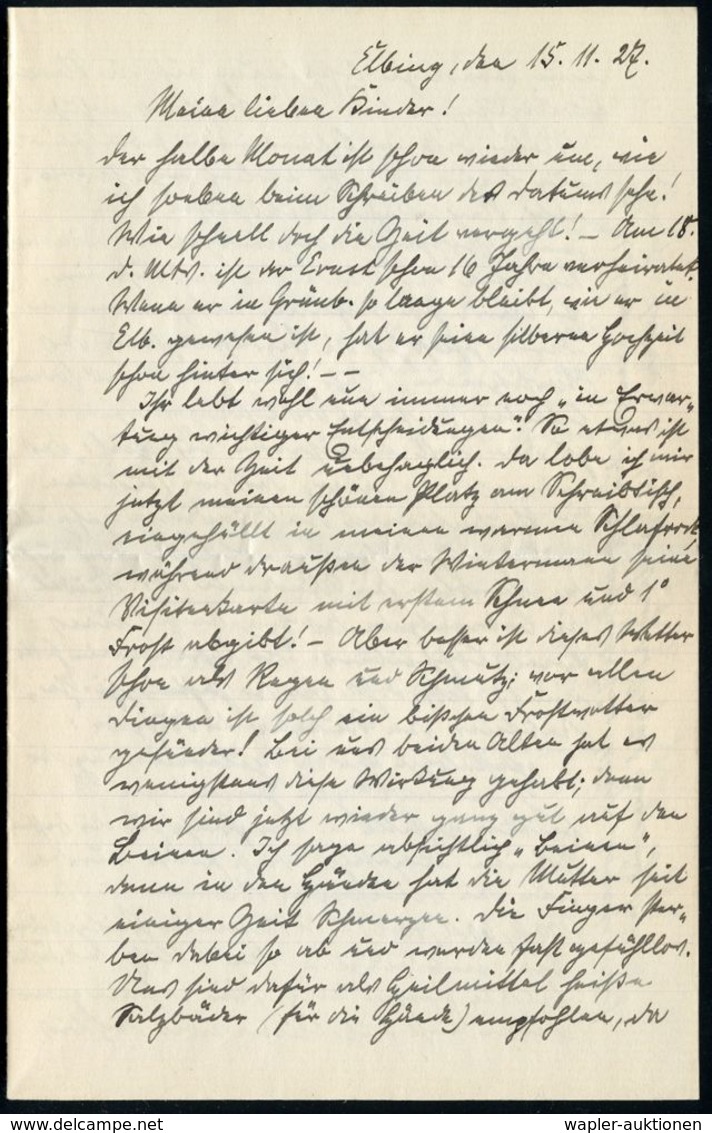 Elbing, den 15. 11. 27.
Meine lieben Kinder!
Der halbe Monat ist schon wieder um, wie
ich soeben beim Schreiben des Datums sehe!
Wie schnell doch die Zeit vergeht! – Am 18.
d. Mts. ist der Ernst schon 16 Jahre verheiratet.
Wenn er in Grünb. so lange bleibt, wie er in
Elb. gewesen ist, hat er seine silberne Hochzeit
schon hinter sich! – –
Ihr lebt wohl nun immer noch „in Erwar-
tung wichtiger Entscheidungen“. So etwas ist
mit der Zeit unbehaglich. Da lobe ich mir
jetzt meinen schönen Platz am Schreibtisch,
eingehüllt in meinen warmen Schlafrock,
während draußen der Wintermann seine
Visitenkarte mit erstem Schnee und 1°
Frost abgibt! – Aber besser ist dieses Wetter
schon als Regen und Schmutz; vor allen
Dingen ist solch ein bißchen Frostwetter
gesünder! Bei uns beiden Alten hat es
wenigstens diese Wirkung gehabt; denn
wir sind jetzt wieder ganz gut auf den
Beinen. Ich sage absichtlich „Beinen“,
denn in den Händen hat die Mutter seit
einiger Zeit Schmerzen. Die Finger ster-
ben dabei so ab und werden fast gefühllos.
Uns sind dafür als Heilmittel heiße
Salzbäder (für die Hände) empfohlen, da
wapler-auktionen